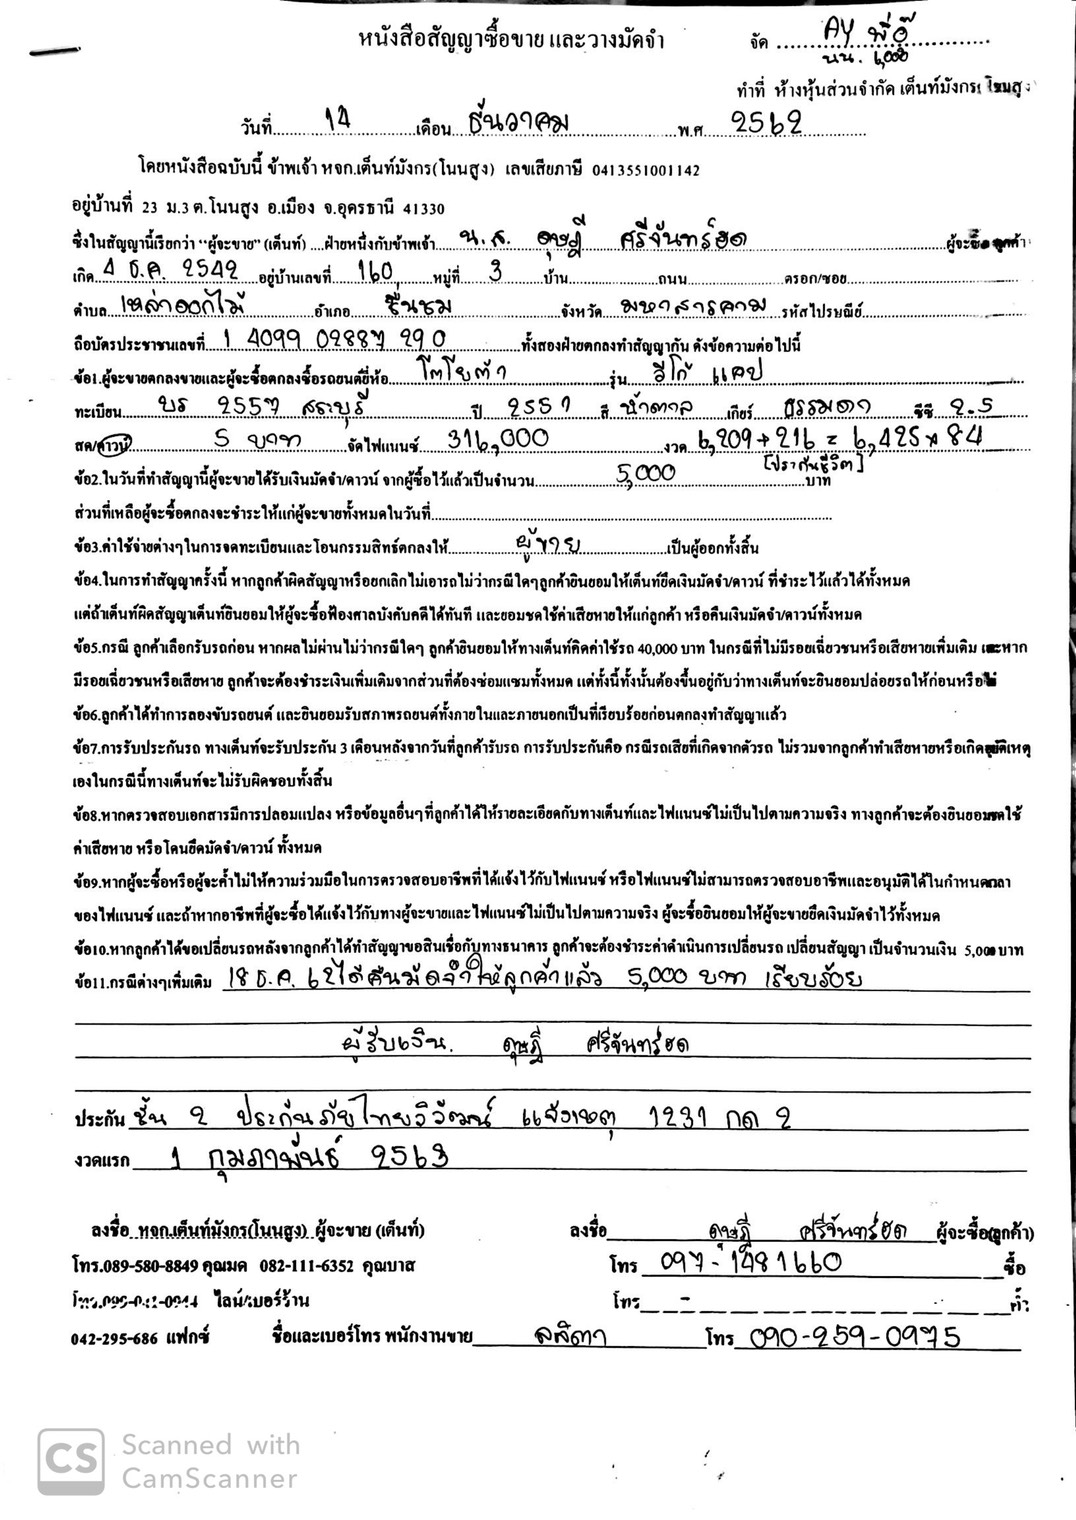 หนังสือสัญญาซื้อขาย และวางมัดจำ
จัด AY พี่อู๊
นน. 6,000
ทำที่ ห้างหุ้นส่วนจำกัด เต็นท์มังกร โนนสูง
วันที่ 14 เดือน ธันวาคม พ.ศ 2562
โดยหนังสือฉบับนี้ ข้าพเจ้า หจก.เต็นท์มังกร(โนนสูง) เลขเสียภาษี 0413551001142
อยู่บ้านที่ 23 ม.3 ต.โนนสูง อ.เมือง จ.อุดรธานี 41330
ซึ่งในสัญญานี้เรียกว่า "ผู้จะขาย" (เต็นท์) ....ฝ่ายหนึ่งกับข้าพเจ้า น.ส. ดุษฎี ศรีจันทร์ฮด ผู้จะซื้อ ลูกค้า
เกิด 4 ธ.ค. 2542 อยู่บ้านเลขที่ 160 หมู่ที่ 3 บ้าน ถนน ตรอก/ซอย
ตำบล เหล่าดอกไม้ อำเภอ ชื่นชม จังหวัด มหาสารคาม รหัสไปรษณีย์
ถือบัตรประชาชนเลขที่ 1 4099 02887 29 0 ทั้งสองฝ่ายตกลงทำสัญญากัน ดังข้อความต่อไปนี้
ข้อ1.ผู้จะขายตกลงขายและผู้จะซื้อตกลงซื้อรถยนต์ยี่ห้อ โตโยต้า รุ่น วีโก้ แคป
ทะเบียน บร 2557 สระบุรี ปี 2551 สี น้ำตาล เกียร์ ธรรมดา ซีซี 2.5
สด/ดาวน์ 5 บาท จัดไฟแนนซ์ 316,000 งวด 6,209+216 = 6,425 x 84
[ประกันชีวิต]
ข้อ2.ในวันที่ทำสัญญานี้ผู้จะขายได้รับเงินมัดจำ/ดาวน์ จากผู้ซื้อไว้แล้วเป็นจำนวน 5,000 บาท
ส่วนที่เหลือผู้จะซื้อตกลงจะชำระให้แก่ผู้จะขายทั้งหมดในวันที่
ข้อ3.ค่าใช้จ่ายต่างๆในการจดทะเบียนและโอนกรรมสิทธ์ตกลงให้ ผู้ขาย เป็นผู้ออกทั้งสิ้น
ข้อ4.ในการทำสัญญาครั้งนี้ หากลูกค้าผิดสัญญาหรือยกเลิกไม่เอารถไม่ว่ากรณีใดๆลูกค้ายินยอมให้เต็นท์ยึดเงินมัดจำ/ดาวน์ ที่ชำระไว้แล้วได้ทั้งหมด
แต่ถ้าเต็นท์ผิดสัญญาเต็นท์ยินยอมให้ผู้จะซื้อฟ้องศาลบังคับคดีได้ทันที และยอมชดใช้ค่าเสียหายให้แก่ลูกค้า หรือคืนเงินมัดจำ/ดาวน์ทั้งหมด
ข้อ5.กรณี ลูกค้าเลือกรับรถก่อน หากผลไม่ผ่านไม่ว่ากรณีใดๆ ลูกค้ายินยอมให้ทางเต็นท์คิดค่าใช้รถ 40,000 บาท ในกรณีที่ไม่มีรอยเฉี่ยวชนหรือเสียหายเพิ่มเติม และหาก
มีรอยเฉี่ยวชนหรือเสียหาย ลูกค้าจะต้องชำระเงินเพิ่มเติมจากส่วนที่ต้องซ่อมแซมทั้งหมด แต่ทั้งนี้ทั้งนั้นต้องขึ้นอยู่กับว่าทางเต็นท์จะยินยอมปล่อยรถให้ก่อนหรือไม่
ข้อ6.ลูกค้าได้ทำการลองขับรถยนต์ และยินยอมรับสภาพรถยนต์ทั้งภายในและภายนอกเป็นที่เรียบร้อยก่อนตกลงทำสัญญาแล้ว
ข้อ7.การรับประกันรถ ทางเต็นท์จะรับประกัน 3 เดือนหลังจากวันที่ลูกค้ารับรถ การรับประกันคือ กรณีรถเสียที่เกิดจากตัวรถ ไม่รวมจากลูกค้าทำเสียหายหรือเกิดอุบัติเหตุ
เองในกรณีนี้ทางเต็นท์จะไม่รับผิดชอบทั้งสิ้น
ข้อ8.หากตรวจสอบเอกสารมีการปลอมแปลง หรือข้อมูลอื่นๆที่ลูกค้าได้ให้รายละเอียดกับทางเต็นท์และไฟแนนซ์ไม่เป็นไปตามความจริง ทางลูกค้าจะต้องยินยอมชดใช้
ค่าเสียหาย หรือโดนยึดมัดจำ/ดาวน์ ทั้งหมด
ข้อ9.หากผู้จะซื้อหรือผู้จะค้ำไม่ให้ความร่วมมือในการตรวจสอบอาชีพที่ได้แจ้งไว้กับไฟแนนซ์ หรือไฟแนนซ์ไม่สามารถตรวจสอบอาชีพและอนุมัติได้ในกำหนดเวลา
ของไฟแนนซ์ และถ้าหากอาชีพที่ผู้จะซื้อได้แจ้งไว้กับทางผู้จะขายและไฟแนนซ์ไม่เป็นไปตามความจริง ผู้จะซื้อยินยอมให้ผู้จะขายยึดเงินมัดจำไว้ทั้งหมด
ข้อ10.หากลูกค้าได้ขอเปลี่ยนรถหลังจากลูกค้าได้ทำสัญญาขอสินเชื่อกับทางธนาคาร ลูกค้าจะต้องชำระค่าดำเนินการเปลี่ยนรถ เปลี่ยนสัญญา เป็นจำนวนเงิน 5,000 บาท
ข้อ11.กรณีต่างๆเพิ่มเติม 18 ธ.ค. 62 ได้คืนมัดจำให้ลูกค้าแล้ว 5,000 บาท เรียบร้อย
ผู้รับเงิน. ดุษฎี ศรีจันทร์ฮด
ประกัน ชั้น 2 ประกันภัยไทยวิวัฒน์ แจ้งเหตุ 1231 กด 2
งวดแรก 1 กุมภาพันธ์ 2563
ลงชื่อ หจก.เต็นท์มังกร(โนนสูง) ผู้จะขาย (เต็นท์) ลงชื่อ ดุษฎี ศรีจันทร์ฮด ผู้จะซื้อ(ลูกค้า)
โทร.089-580-8849 คุณมด 082-111-6352 คุณบาส โทร 097-1481660 ซื้อ
ไลน์/เบอร์ร้าน โทร - ค้ำ
042-295-686 แฟกซ์ ชื่อและเบอร์โทร พนักงานขาย ลลิตา โทร 090-259-0975
CS Scanned with
CamScanner